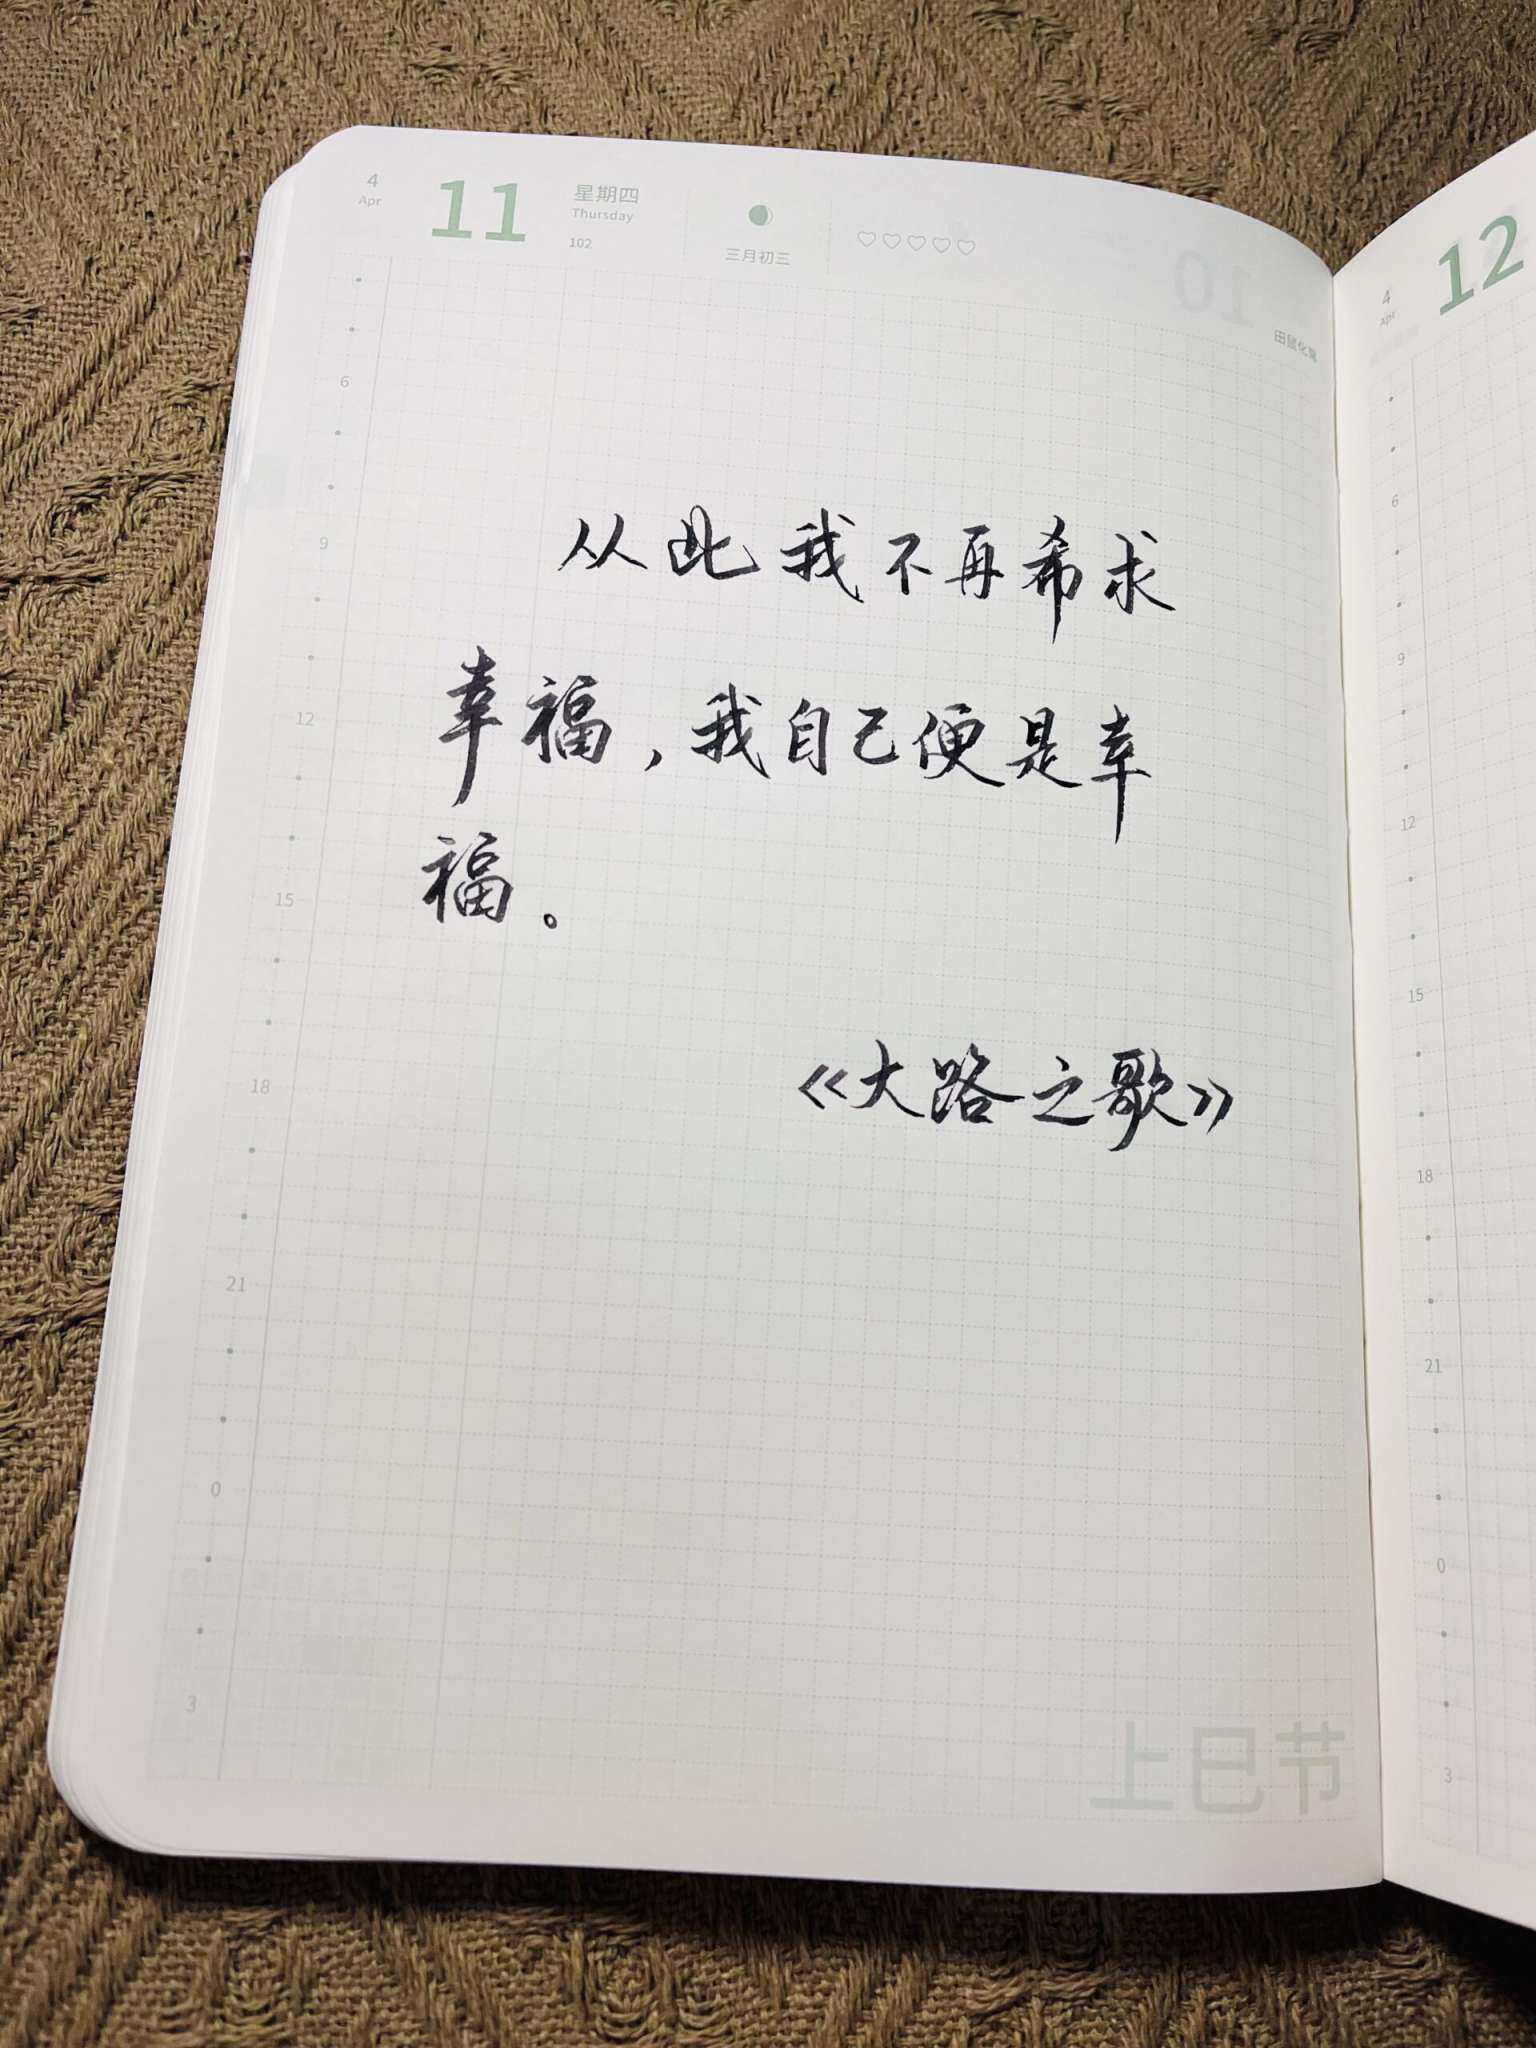 4
Apr
11
星期四
Thursday
102
三月初三
10
田鼠化鴽
6
9
12
15
18
21
0
3
从此我不再希求
幸福，我自己便是幸
福。
《大路之歌》
上巳节
4
Apr
12
6
9
12
15
18
21
0
3